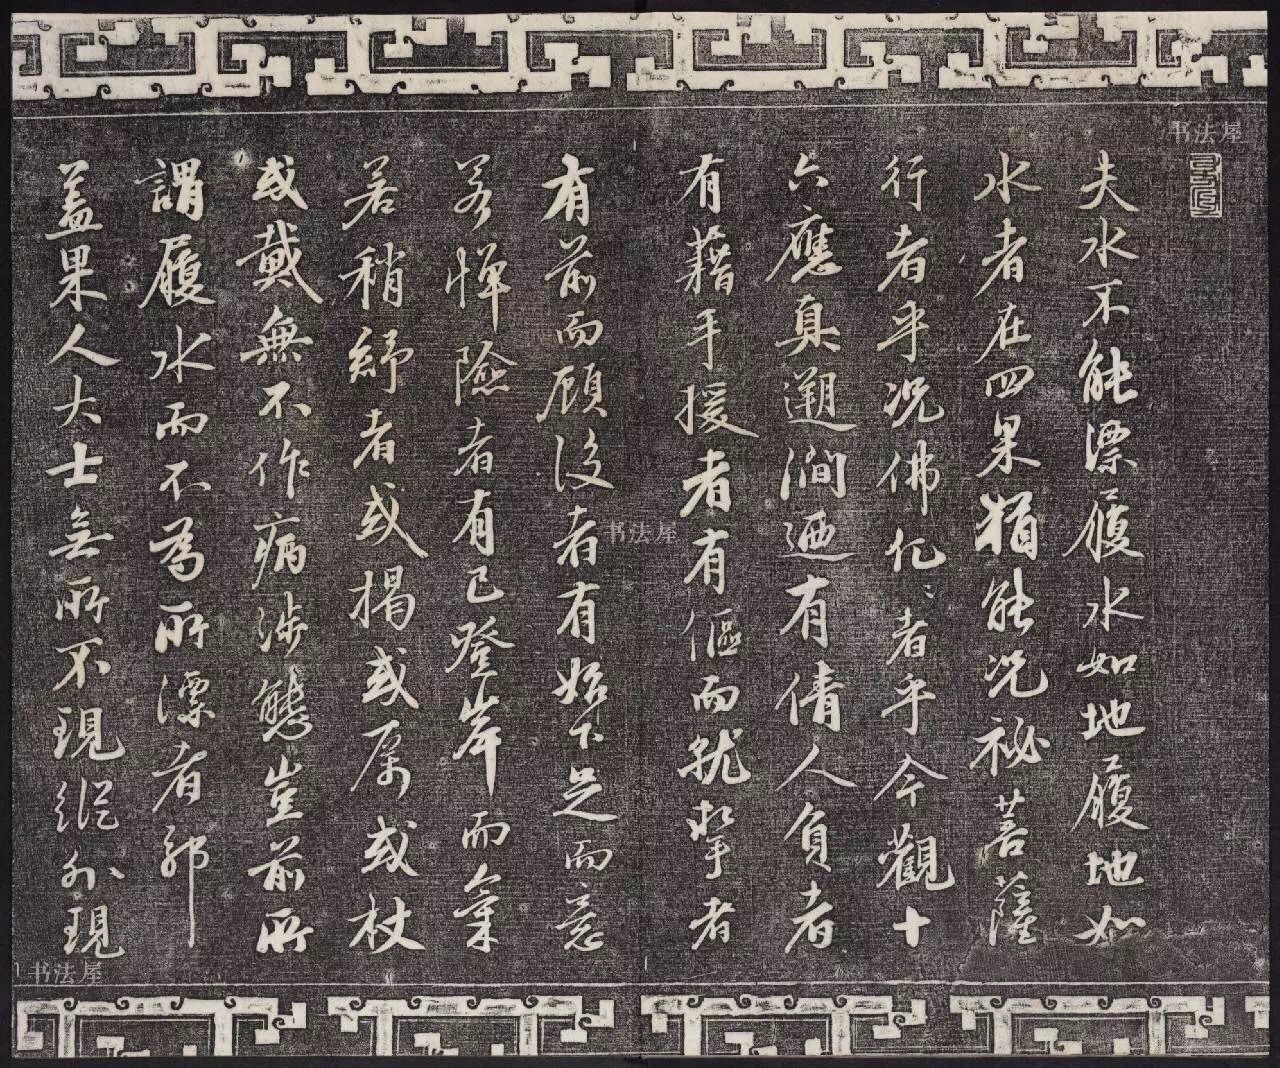 夫水不能漂履水如地履地如
水者在四果猶能况祕菩薩
行者乎况佛化〻者乎今觀十
六應真遡澗迺有倩人負者
有藉手援者有傴而就挈者
有前而顧後者有始下足而意
若憚險者有已登岸而氣
若稍紓者或揭或厲或杖
或戴無不作病涉態豈前所
謂履水而不為所漂者耶
蓋果人大士無所不現縱外現
书法屋
书法屋
书法屋